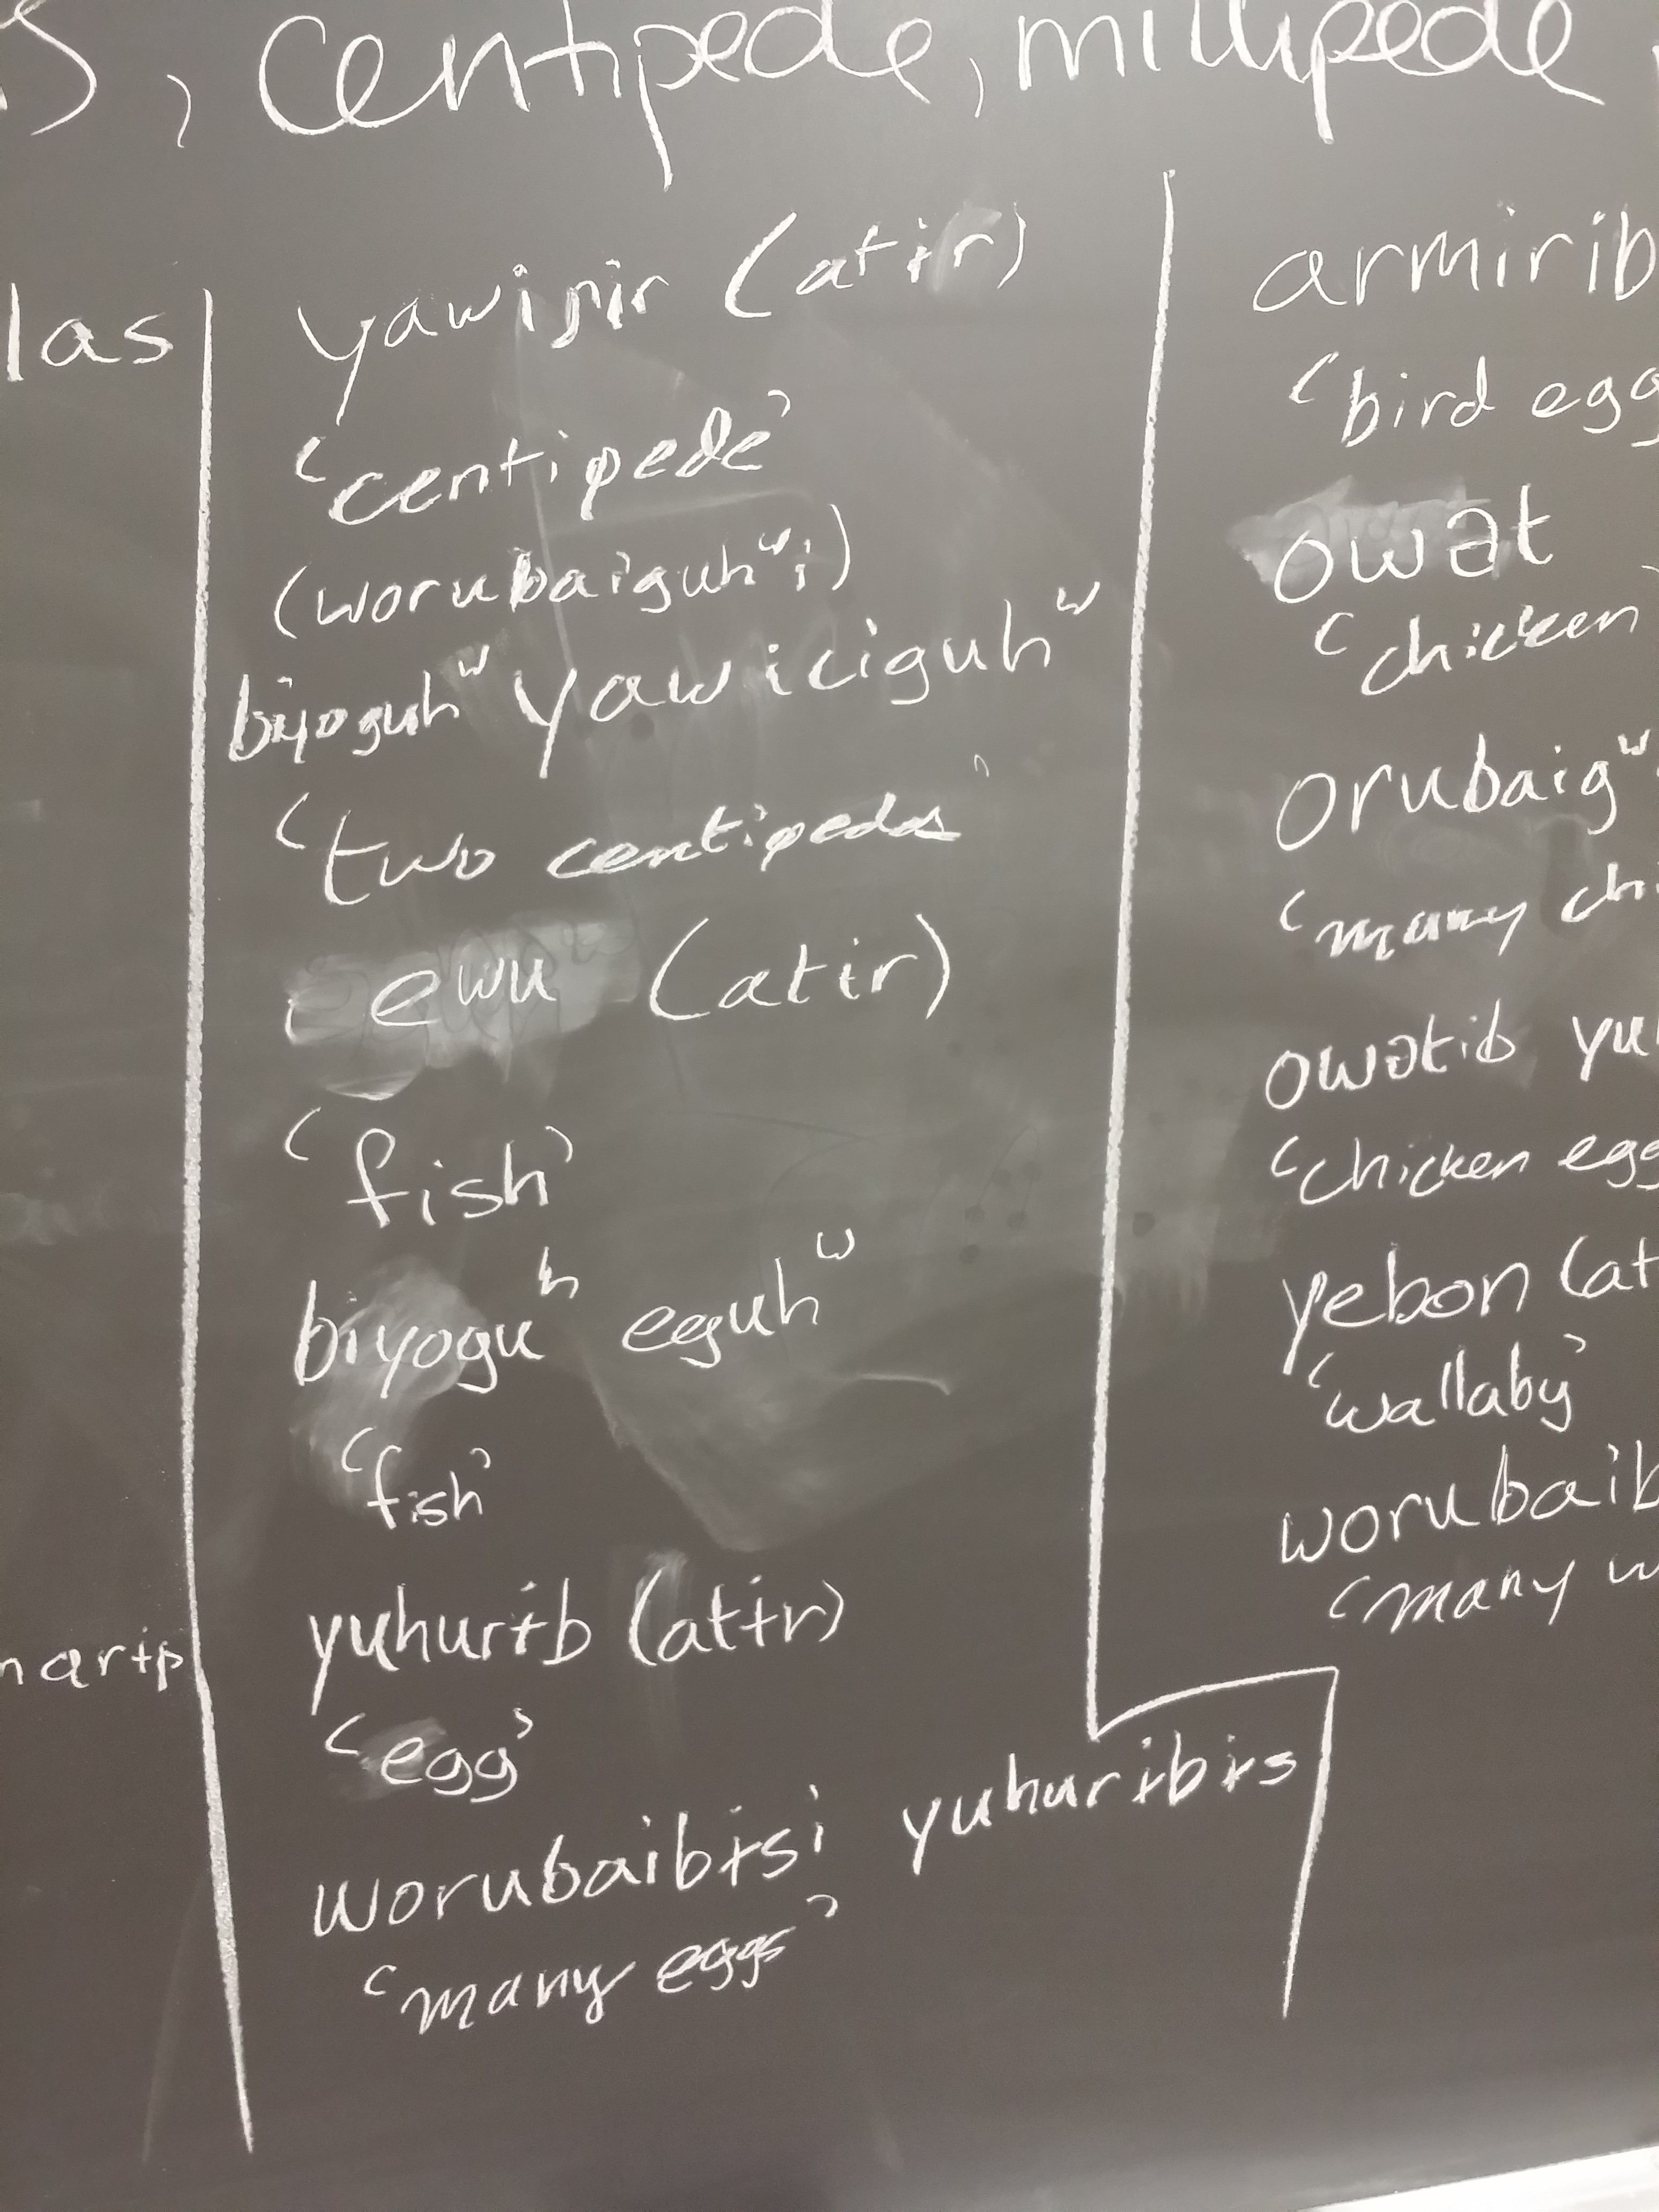 s, centipede, millipede,
las
narɨp
yawiɲir (atɨr)
‘centipede’
(worubaiguhʷi)
biyoguhʷ yawiciguhʷ
‘two centipedes’
ewu (atɨr)
‘fish’
biyoguʰ eguhʷ
‘fish’
yuhurɨb (atɨr)
‘egg’
worubaibɨsi yuhurɨbɨs
‘many eggs’
armirib
‘bird egg
owət
‘chicken
orubaigʷ
‘many chi
owətib yu
‘chicken egg
yebon (at
‘wallaby’
worubaib
‘many w